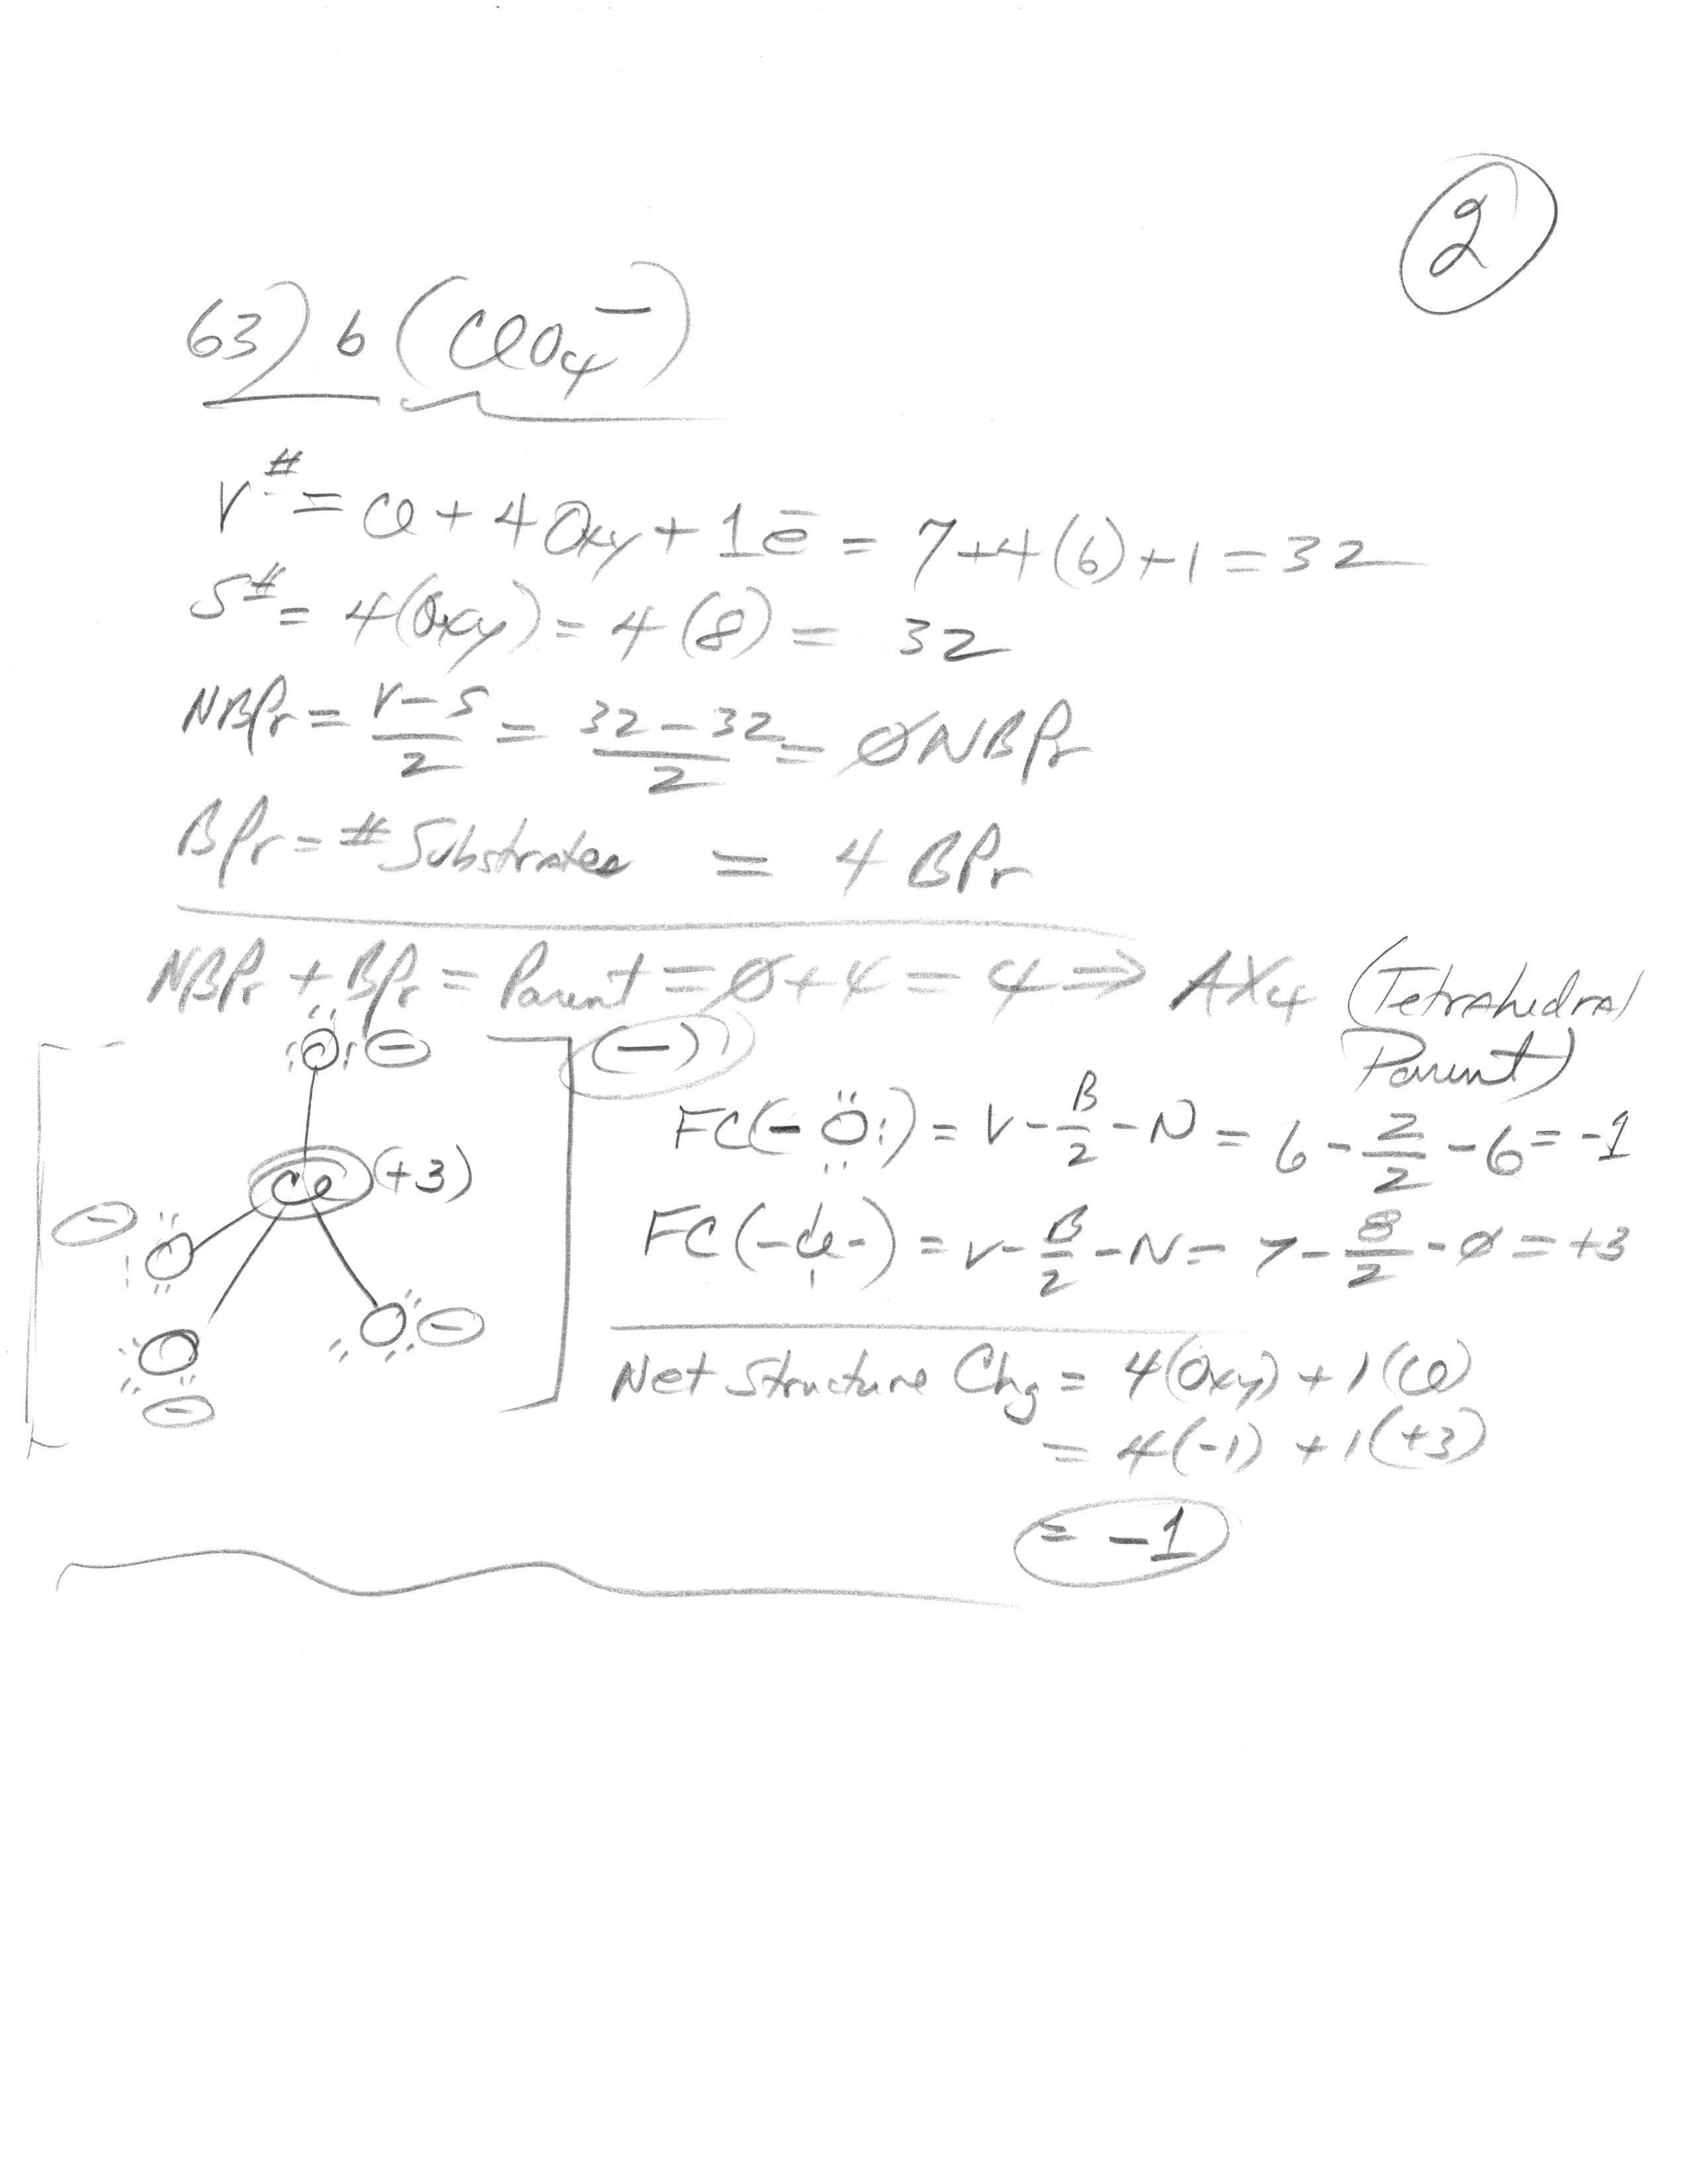 2
63) b (ClO₄⁻)
V# = Cl + 4 Oxy + 1e⁻ = 7 + 4(6) + 1 = 32
S# = 4(Oxy) = 4(8) = 32
NBPr = V - S / 2 = 32 - 32 / 2 = Ø NBPr
BPr = # Substrates = 4 BPr
NBPr + BPr = Parent = Ø + 4 = 4 ⇒ AX₄ (Tetrahedral
Parent)
:Ö: (-) (-)
Cl (+3)
(-) O
O (-)
O
(-)
FC(-Ö:) = V - B/2 - N = 6 - 2/2 - 6 = -1
FC(-Cl-) = V - B/2 - N = 7 - 8/2 - Ø = +3
Net Structure Chg = 4(Oxy) + 1(Cl)
= 4(-1) + 1(+3)
= -1